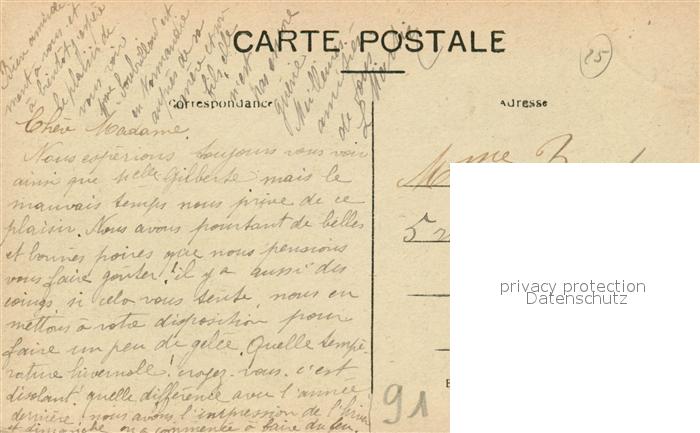 CARTE POSTALE
25
Correspondance
Adresse
Chère Madame,
Nous espérions toujours vous voir
ainsi que Melle Gilberte mais le
mauvais temps nous prive de ce
plaisir. Nous avons pourtant de belles
et bonnes poires que nous pensions
vous faire goûter! il y a aussi des
coings, si cela vous tente, nous en
mettons à votre disposition pour
faire un peu de gelée. Quelle tempé-
rature hivernale! croyez-vous, c'est
désolant! quelle différence avec l'année
dernière! nous avons l'impression de l'hiver
et dimanche on a commencé à faire du feu.
Bien amicale-
ment à vous et
à bientôt j'espère
le plaisir de
vous voir
Soubrillard est
en Normandie
auprès de sa
mère et son
fils, elle
n'est
pas encore
guérie
Meilleures
amitiés
de
Mme
52
privacy protection
Datenschutz
91